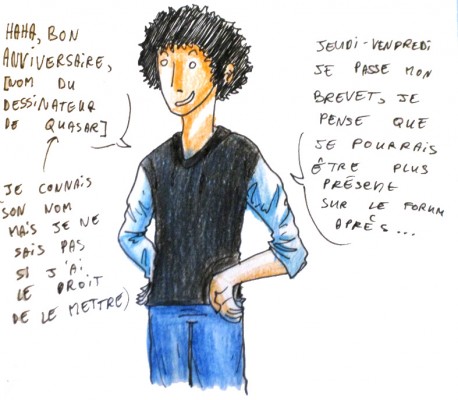 HAHA, BON
ANNIVERSAIRE,
[NOM DU
DESSINATEUR
DE QUASAR]
JE CONNAIS
SON NOM
MAIS JE NE
SAIS PAS
SI J'AI
LE DROIT
DE LE METTRE)
JEUDI-VENDREDI
JE PASSE MON
BREVET, JE
PENSE QUE
JE POURRAIS
ÊTRE PLUS
PRÉSENT
SUR LE FORUM
APRÈS...